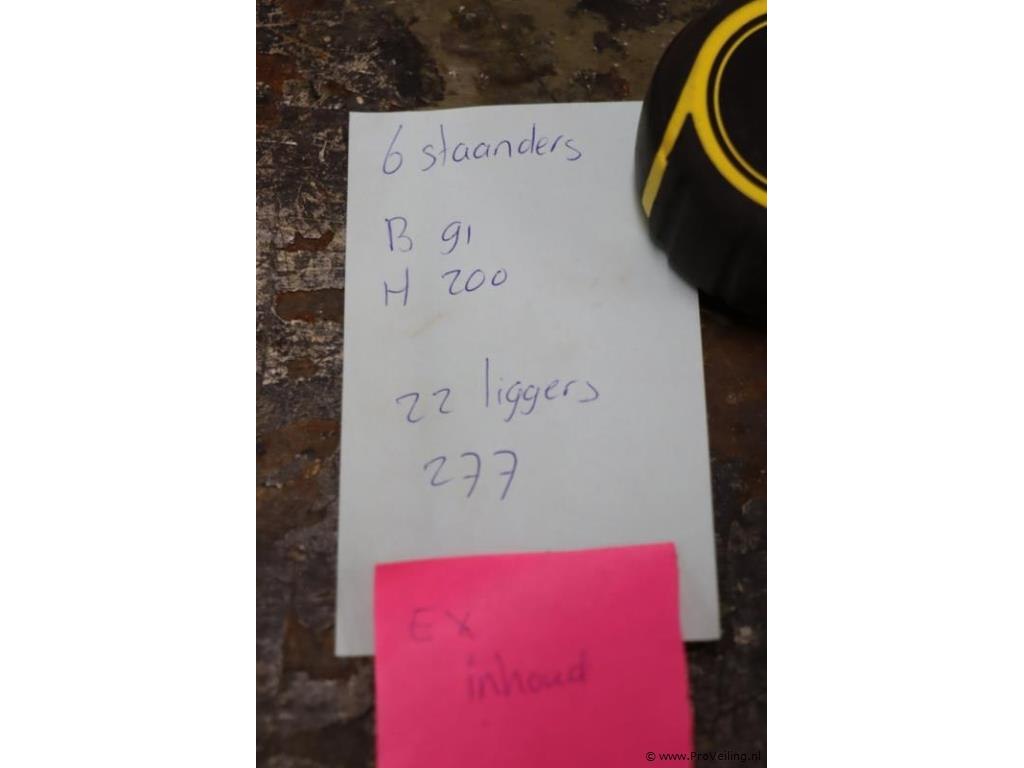 6 staanders
B 91
H 200
22 liggers
277
EX
inhoud
© www.ProVeiling.nl